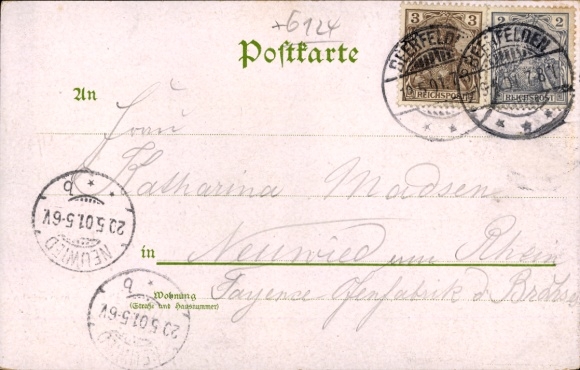 +6124
Postkarte
3
REICHSPOST
2
REICHSPOST
BEERFELDEN
BEERFELDEN
An
Frau
Katharina Madsen
in Neuwied am Rhein
Wohnung
(Straße und Hausnummer)
Fayence Ofenfabrik d.
NEUWIED
20.5.01.5-6V.
b
20.5.01.5-6V.
b